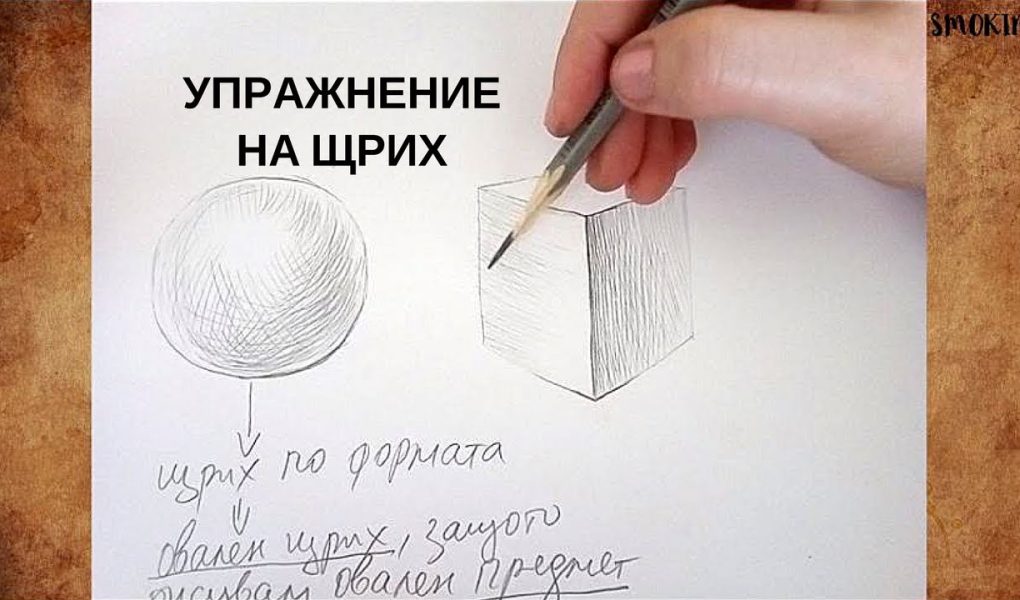 SMOKIN
УПРАЖНЕНИЕ
НА ЩРИХ
щрих по формата
овален щрих, защото
рисувам овален предмет